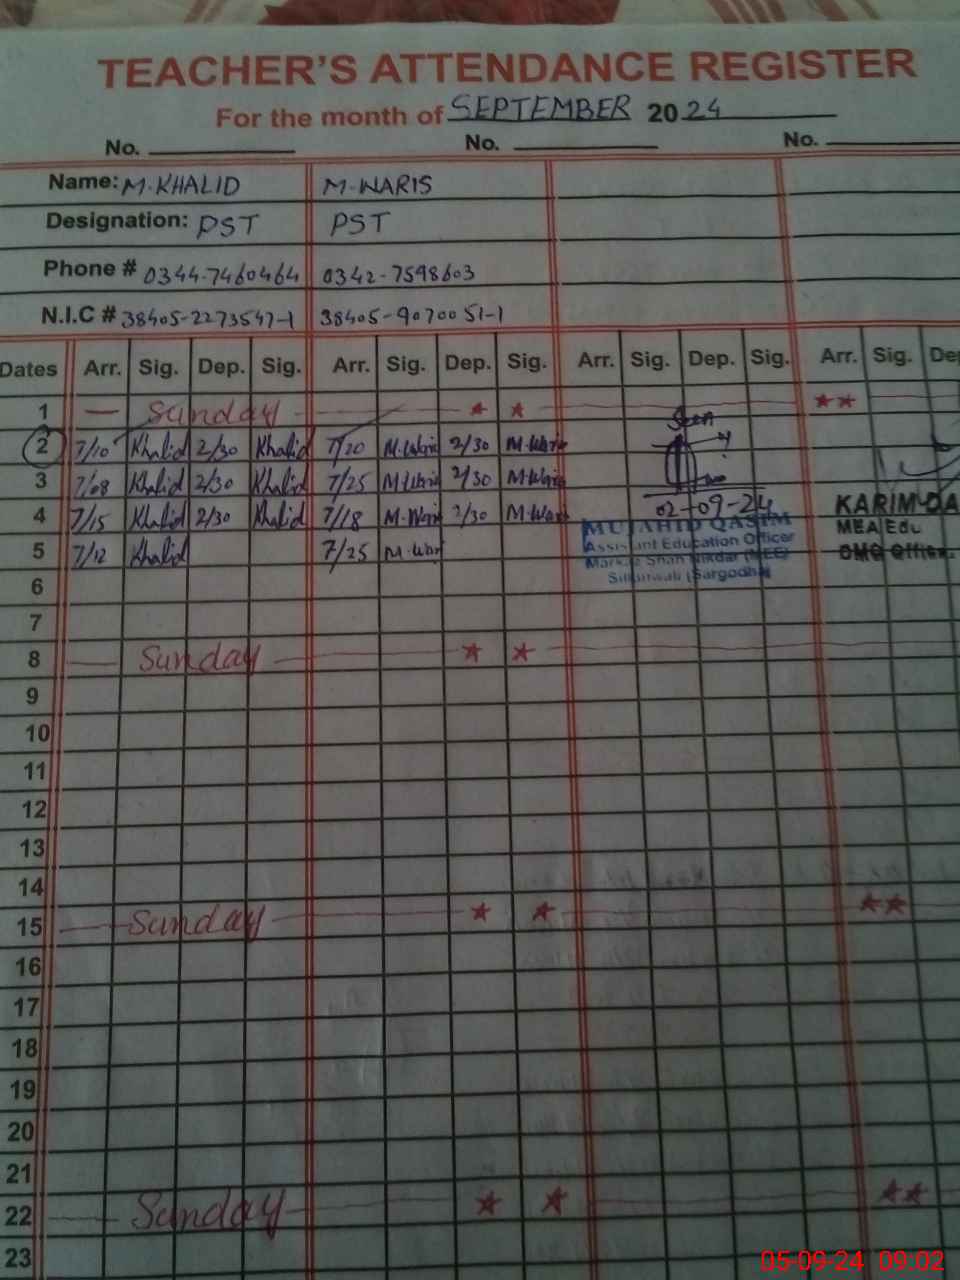 TEACHER'S ATTENDANCE REGISTER
For the month of SEPTEMBER 2024
No. No. No.
Name: M.KHALID M.WARIS
Designation: PST PST
Phone # 0344-7460464 0342-7598603
N.I.C # 38405-2273547-1 38405-9070051-1
Dates Arr. Sig. Dep. Sig. Arr. Sig. Dep. Sig. Arr. Sig. Dep. Sig. Arr. Sig. De
1 Sunday
2 7/10 Khalid 2/30 Khalid 7/20 M.Waris 2/30 M.Waris Seen
3 7/08 Khalid 2/30 Khalid 7/25 M.Waris 2/30 M.Waris
4 7/15 Khalid 2/30 Khalid 7/18 M.Waris 2/30 M.Waris 02-09-24 KARIM DA
MUJAHID QASIM MEA Edu
5 7/12 Khalid 7/25 M.War Assistant Education Officer DMO Office
Markaz Shah Nikdar (MEE)
6 Sillanwali (Sargodha)
7
8 Sunday
9
10
11
12
13
14
15 Sunday
16
17
18
19
20
21
22 Sunday
23
05-09-24 09:02